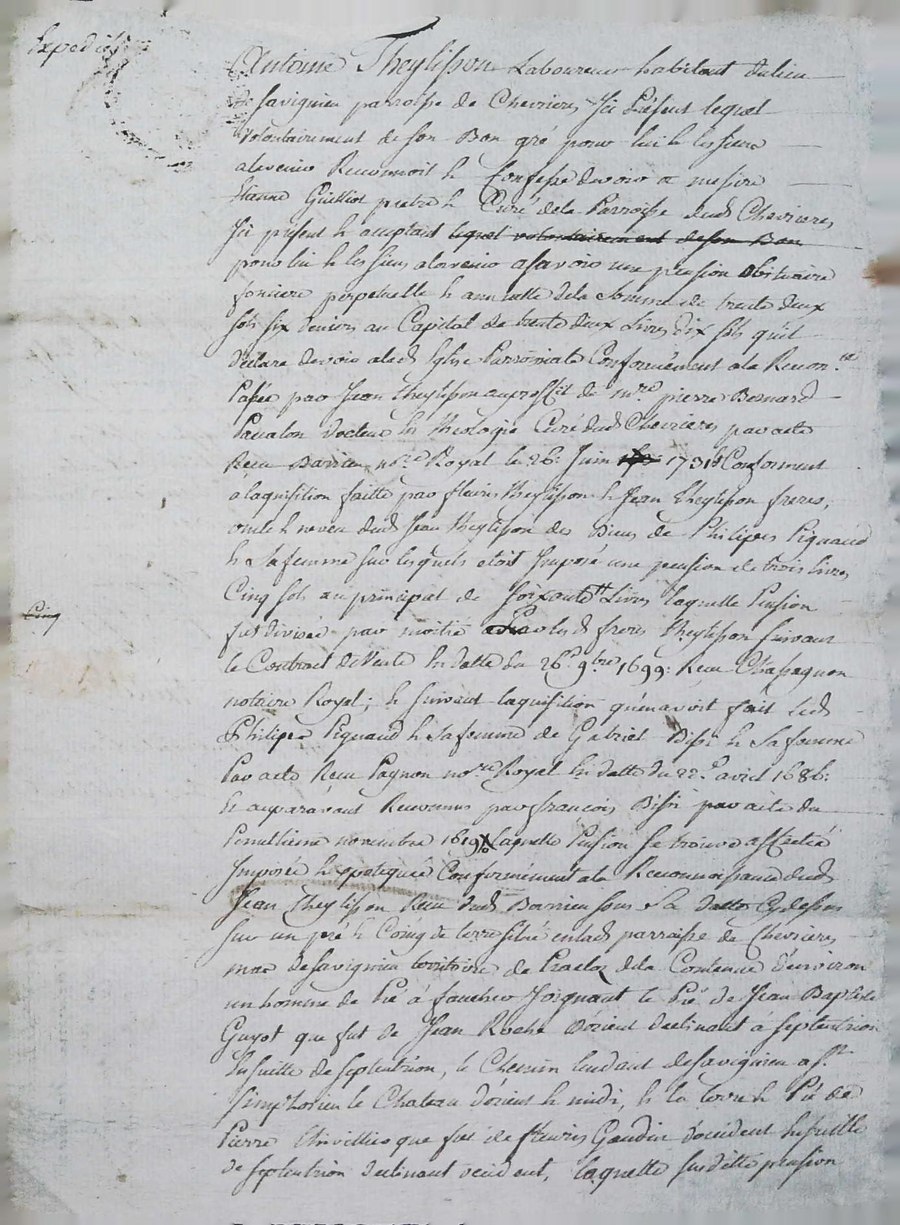 Expedié
Antoine Theylisson Laboureur habitant du lieu
de savignieu parroisse de Chevrieres Ici Présent lequel
volontairement de son Bon gré pour lui & les siens
alavenir Reconnoit & Confesse devoir a messire
Etienne Guilliot pretre & Curé de la Parroisse dud Chevrieres
Ici présent & acceptant lequel volontairement de son Bon
pour lui & les siens alavenir asavoir une pension obituaire
fonciere perpetuelle & annuelle de la somme de trente deux
sols six deniers au Capital de trente deux Livres dix sols qu'il
déclare devoir alad Eglise Parroissiale Conformément ala Recon.ce
Passée par Jean theylisson auproffit de m.re pierre Bernard
Pavalon docteur En theologie Curé dud Chevrieres par acte
Recu Barrieu n.re Royal le 26.e Juin 1731 & Conforment
a laquisition faitte par fleuris theylisson & Jean theylisson freres,
oncle & neveu dud Jean theylisson des Biens de Philipes Pignaud
& sa femme sur lesquels etoit Imposé une pension de trois livres
Cinq sols au principal de soixante Livres laquelle Pension
Cinq
fut divisée par moitié par lesd freres theylisson suivant
le Contract de Vente En datte du 26.e 9bre 1699: Recu Chassagnon
notaire Royal; & suivant laquisition qu'en avoit fait led
Philipes Pignaud & sa femme de Gabriel Bissi & sa femme
Par acte Recu Pagnon no.re Royal En datte du 22.e avril 1686:
& auparavant Reconnus par francois Bissi par acte du
Penultieme novembre 1619 laquelle Pension se trouve affectée
Imposée & ypotiquée Conformément ala Reconnoissance dud
Jean Theylisson Recu dud Barrieu sous sa datte Cydessus
sur un pré & Coing de terre situé enlad parroisse de Chevrieres
mas de savignieu territoire de de la Contenue d'environ
un homme de Pré à faucher Joignant le Pré de Jean Baptiste
Guyot que fut de Jean Roche d'orient declinant à septentrion
Ensuitte de septentrion, le Chemin tendant de savignieu a s.t
simphorien le Chateau d'orient & midi, & la terre & Pré de
Pierre que fut de fleuris Gaudin d'occident Ensuitte
de septentrion declinant occident, laquelle susditte pension